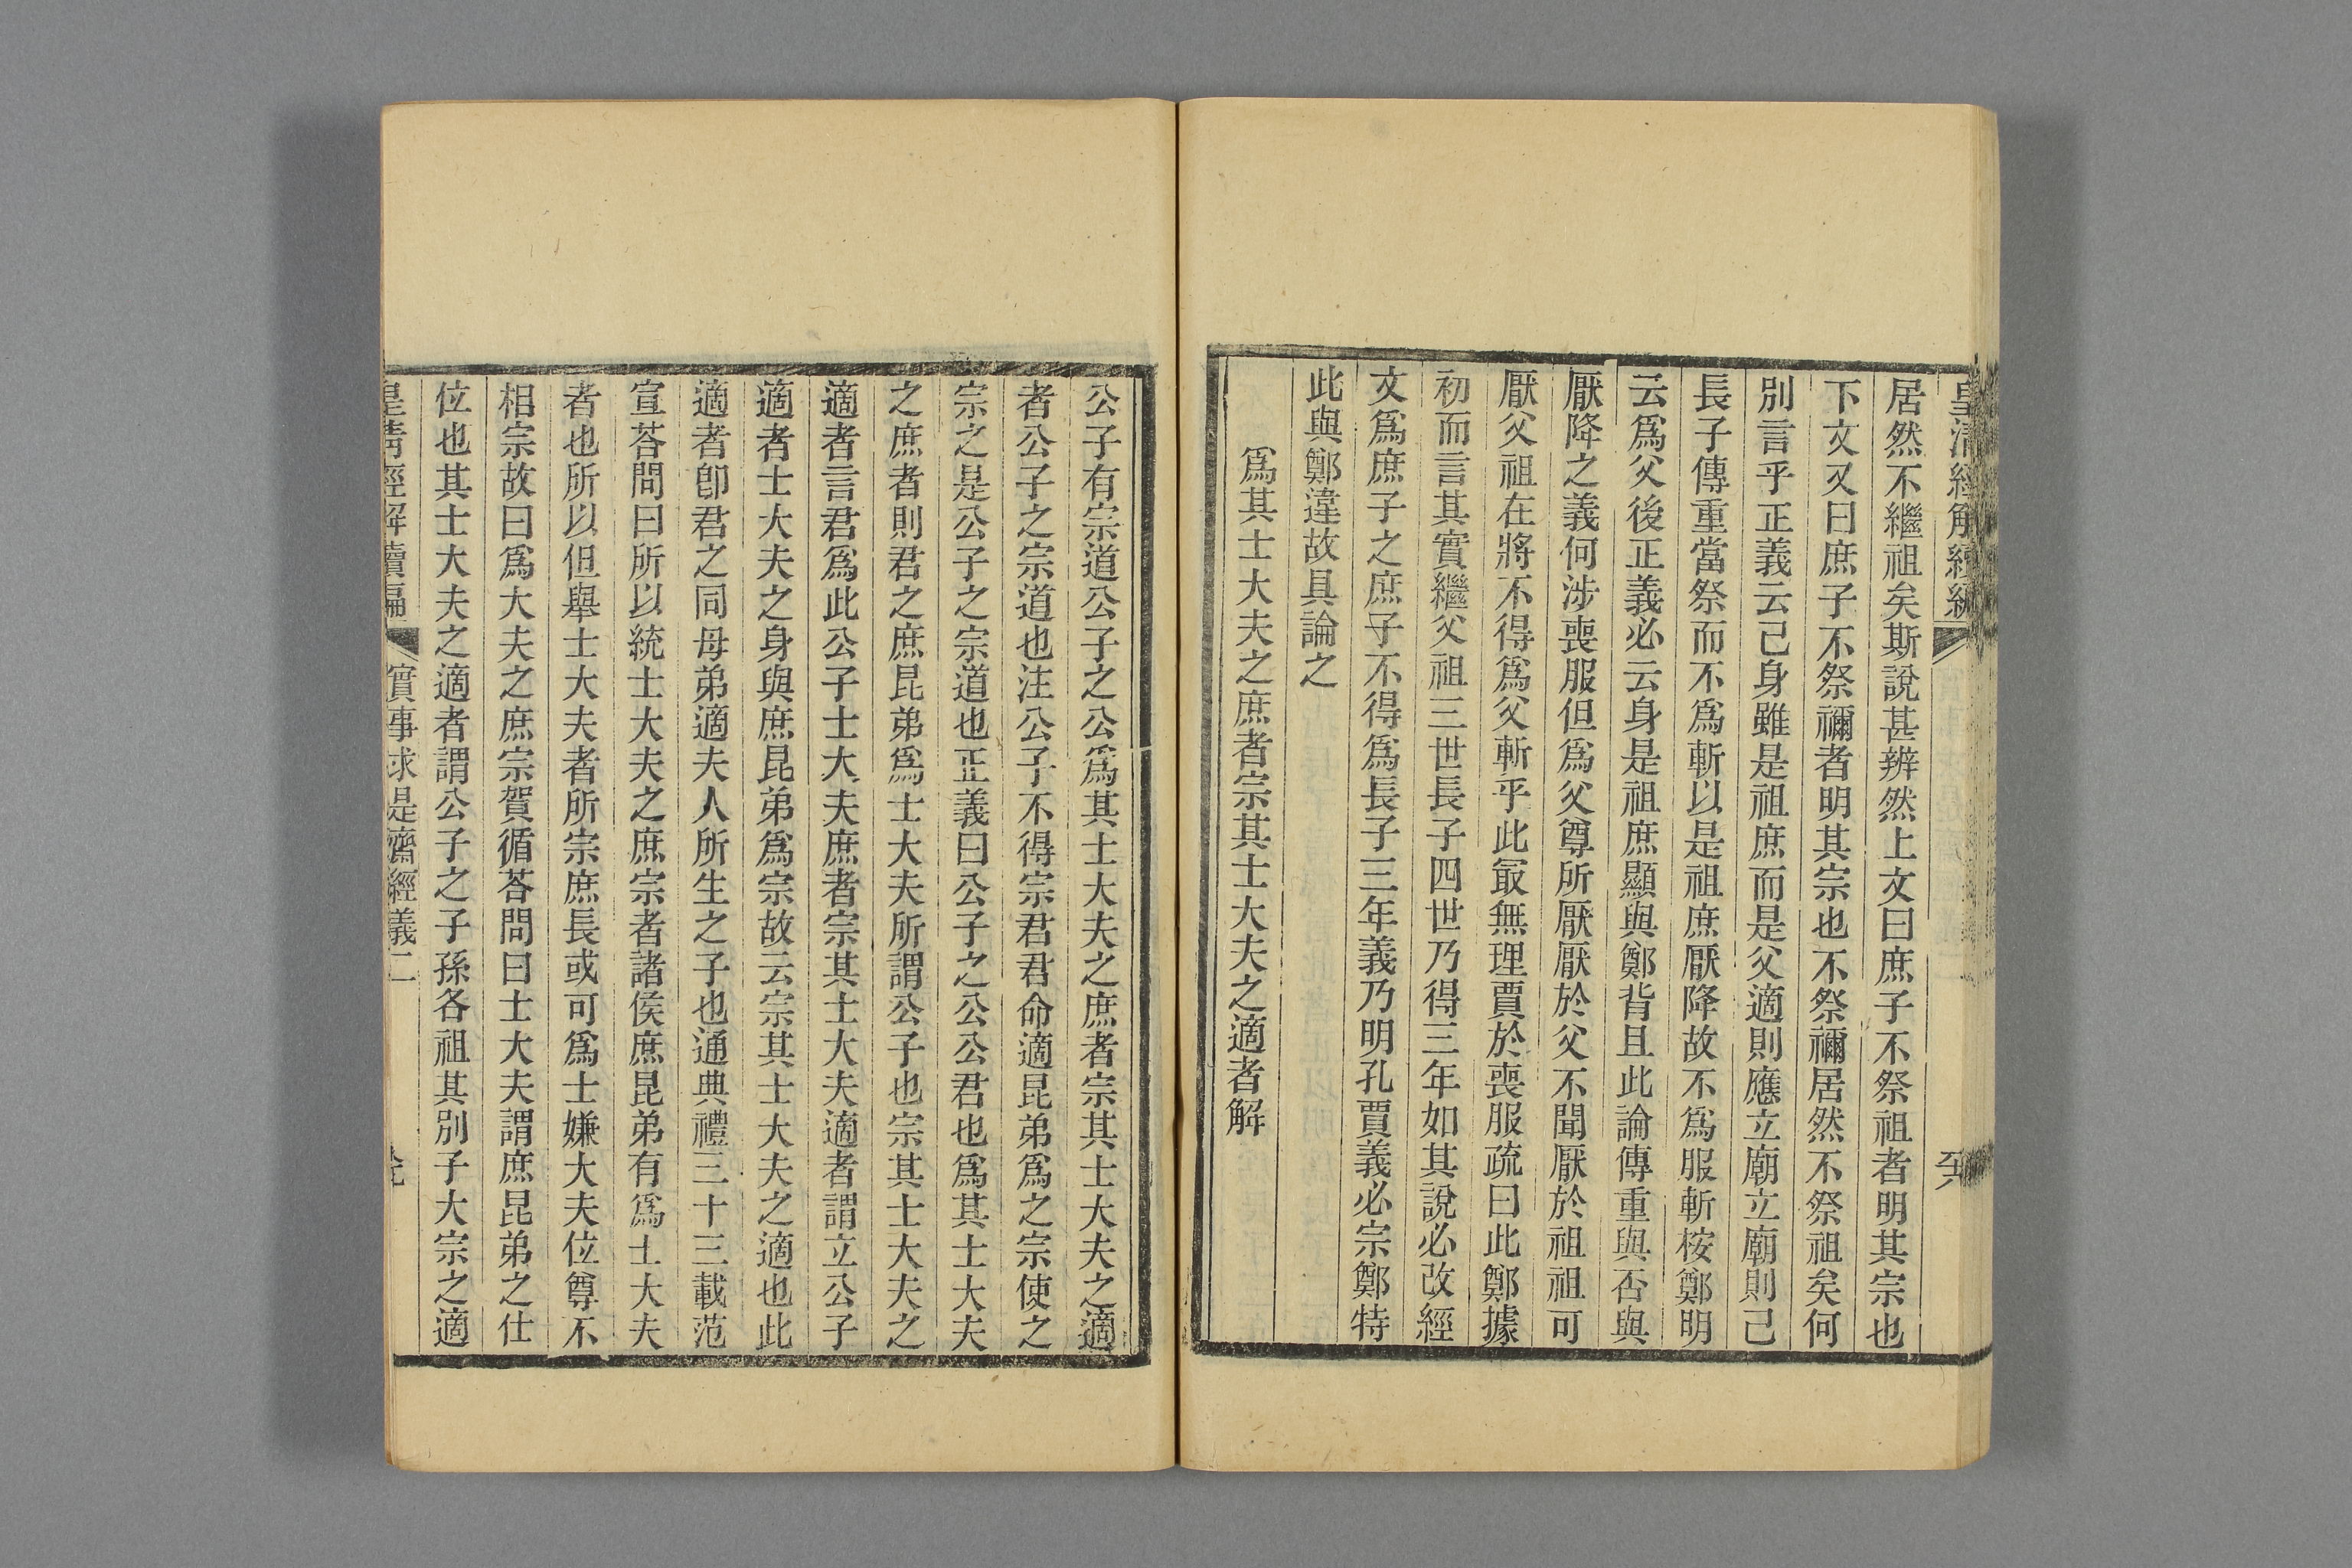 皇清經解續編
居然不繼祖矣斯說甚辨然上文曰庶子不祭祖者明其宗也
下文又曰庶子不祭禰者明其宗也不祭禰居然不祭祖矣何
別言乎正義云己身雖是祖庶而是父適則應立廟立廟則己
長子傳重當祭而不爲斬以是祖庶厭降故不爲服斬桉鄭明
云爲父後正義必云身是祖庶顯與鄭背且此論傳重與否與
厭降之義何涉喪服但爲父尊所厭厭於父不聞厭於祖祖可
厭父祖在將不得爲父斬乎此㝡無理賈於喪服疏曰此鄭據
初而言其實繼父祖三世長子四世乃得三年如其說必改經
文爲庶子之庶子不得爲長子三年義乃明孔賈義必宗鄭特
此與鄭違故具論之
爲其士大夫之庶者宗其士大夫之適者解
公子有宗道公子之公爲其士大夫之庶者宗其士大夫之適
者公子之宗道也注公子不得宗君君命適昆弟爲之宗使之
宗之是公子之宗道也正義曰公子之公公君也爲其士大夫
之庶者則君之庶昆弟爲士大夫所謂公子也宗其士大夫之
適者言君爲此公子士大夫庶者宗其士大夫適者謂立公子
適者士大夫之身與庶昆弟爲宗故云宗其士大夫之適也此
適者卽君之同母弟適夫人所生之子也通典禮三十三載范
宣荅問曰所以統士大夫之庶宗者諸侯庶昆弟有爲士大夫
者也所以但舉士大夫者所宗庶長或可爲士嫌大夫位尊不
相宗故曰爲大夫之庶宗賀循荅問曰士大夫謂庶昆弟之仕
位也其士大夫之適者謂公子之子孫各祖其別子大宗之適
皇清經解續編 實事求是齋經義二